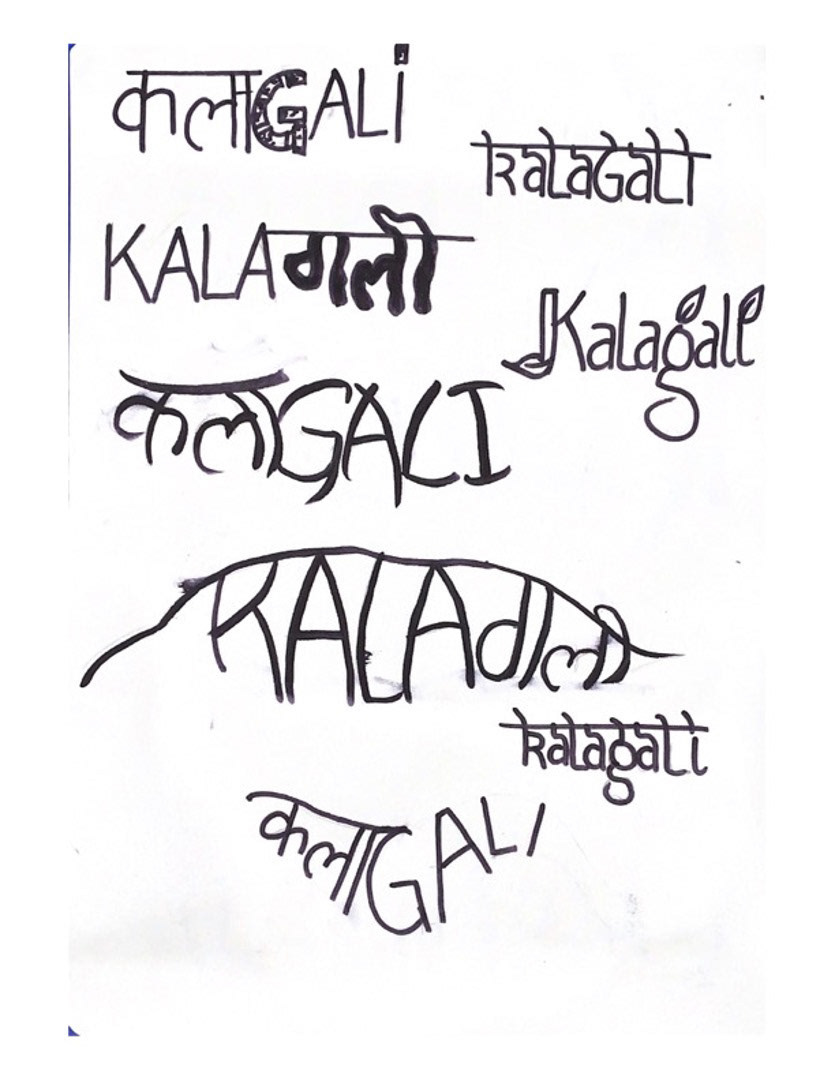 कलाGALi
kalaGali
KALAगली
Kalagali
कलाGALI
KALAगली
kalagali
कलाGALI